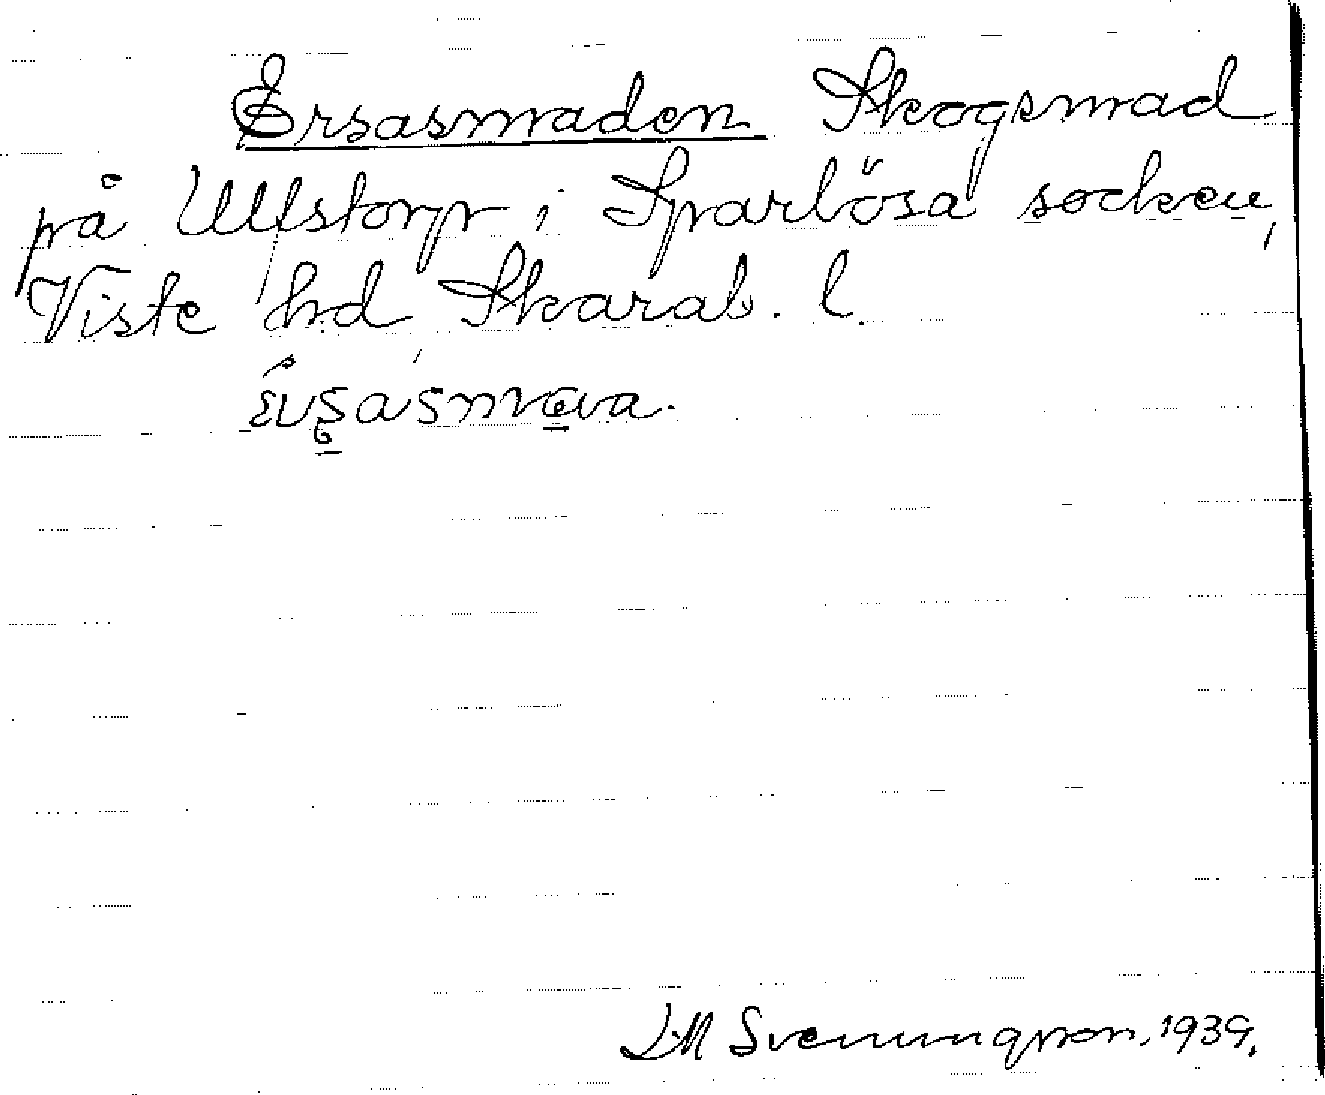 Ersasmaden Skogsmad
på Ulfstorp i Sparlösa socken,
Viste hd Skarab. l.
J.M Svenungsson. 1939.